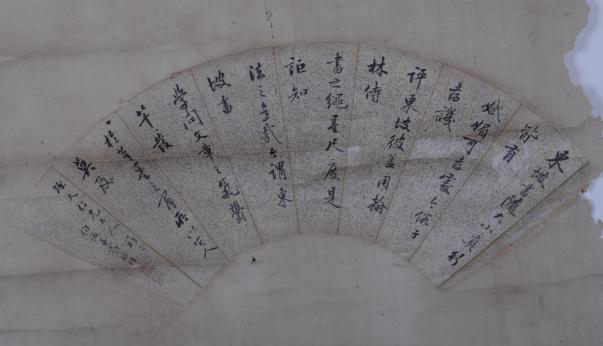 東坡書隨大小真行
皆有
嫵媚可喜處今俗子
喜譏
評東坡彼蓋用翰
林侍
書之繩墨尺度是
詎知
法之意哉余謂東
坡書
學問文章之氣鬱
芊發
於筆墨之間所以它人
莫及
仁兄大人